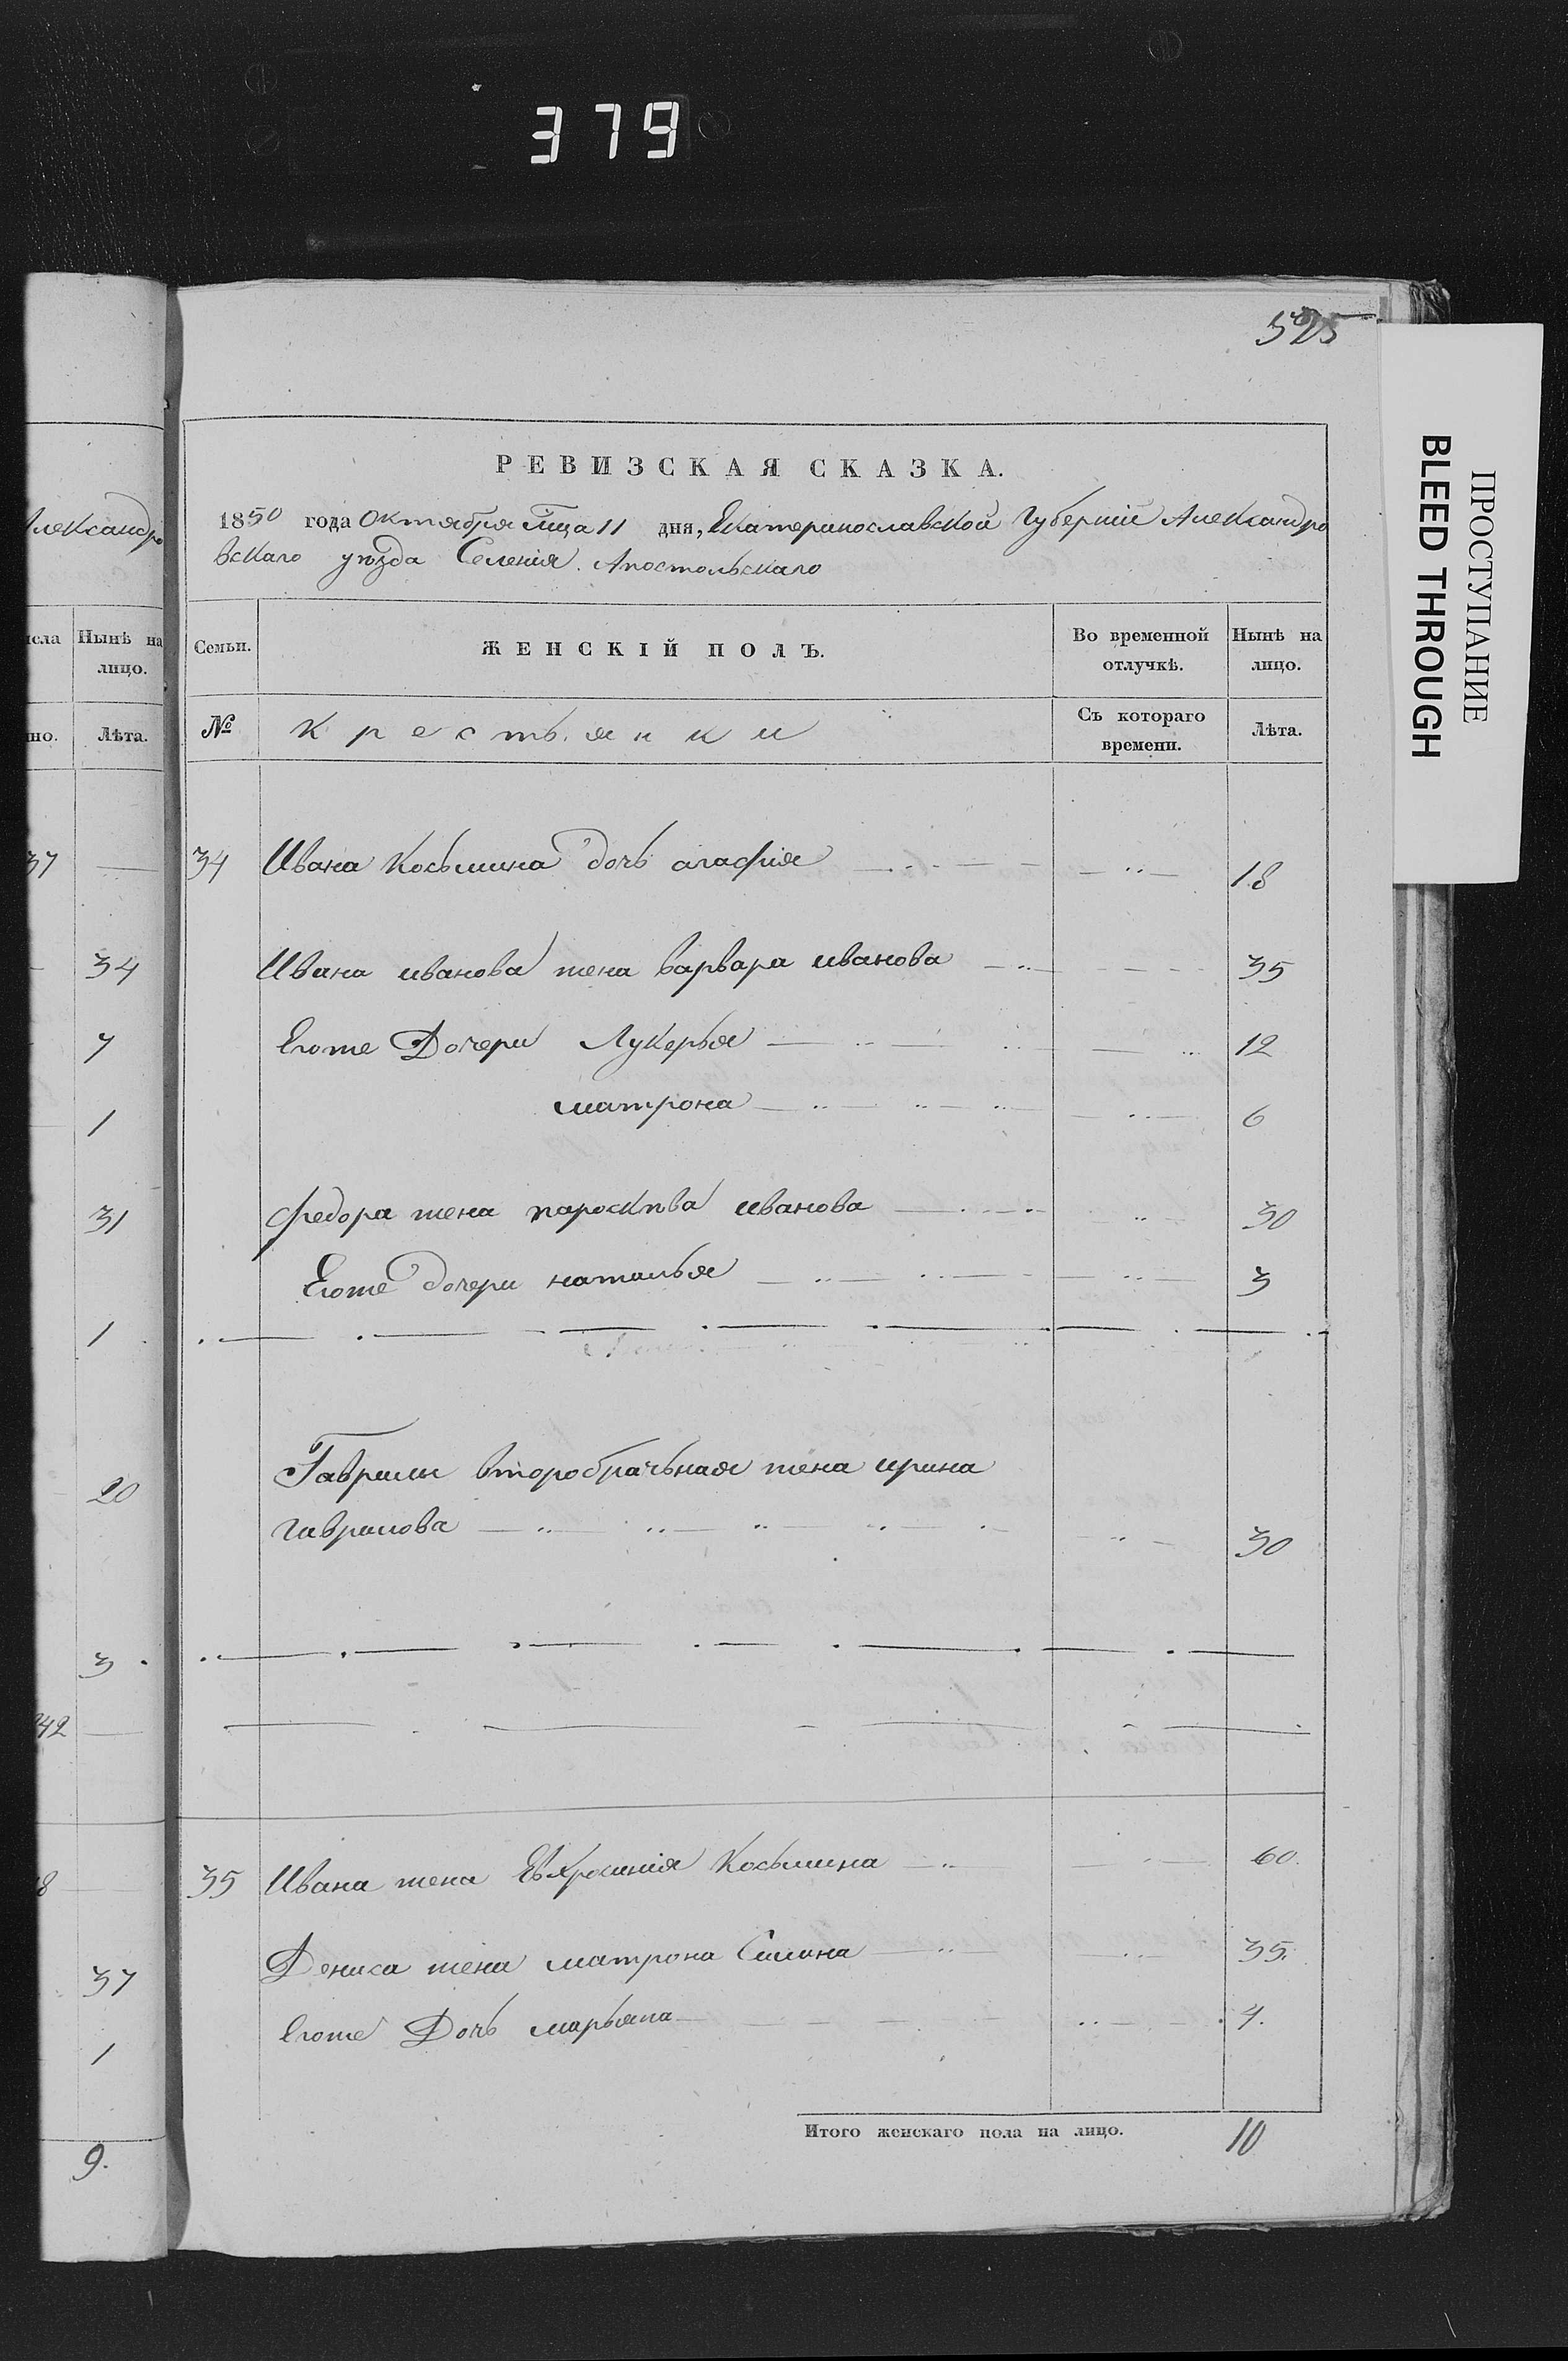 379
525
ПРОСТУПАНИЕ
BLEED THROUGH
РЕВИЗСКАЯ СКАЗКА.
1850 года Октября мца 11 дня, Екатеринославской Губернии Александро
вскаго уѣзда Селенія Апостольскаго
Александро
исла Нынѣ на лицо.
но. Лѣта.
Семьи. ЖЕНСКІЙ ПОЛЪ. Во временной отлучкѣ. Нынѣ на лицо.
№ крестьянки Съ котораго времени. Лѣта.
37
34 Ивана Косьмина дочь агафия 18
34
Ивана иванова жена варвара иванова 35
7
Егоже Дочери Лукерья 12
1
матрона 6
31
федора жена параскѣва иванова 30
Егоже дочери наталья 3
1
20
Гаврилы второбрачьная жена ирина
гаврилова 30
3
242
8
35 Ивана жена Евхросиния Косьмина 60.
37
Дениса жена матрона Силина 35.
1
Егоже Дочь марьяна 4.
9.
Итого женскаго пола на лицо. 10